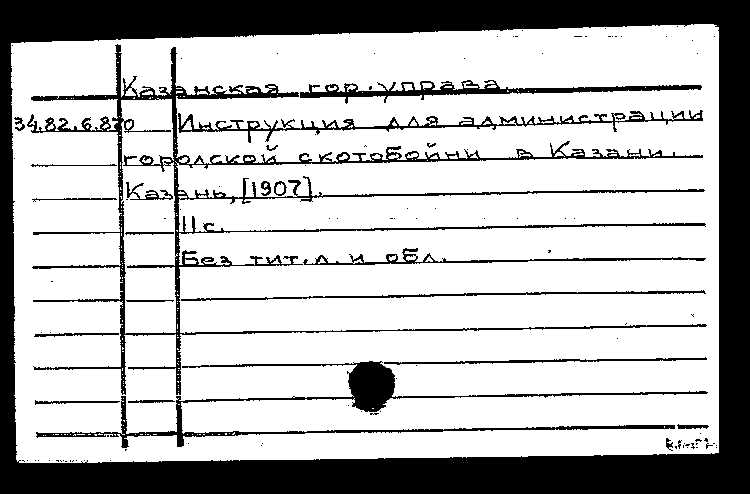 Казанская гор. управа
34.82.6.870 Инструкция для администрации
городской скотобойни в Казани.
Казань, [1907].
11 с.
Без тит. л. и обл.